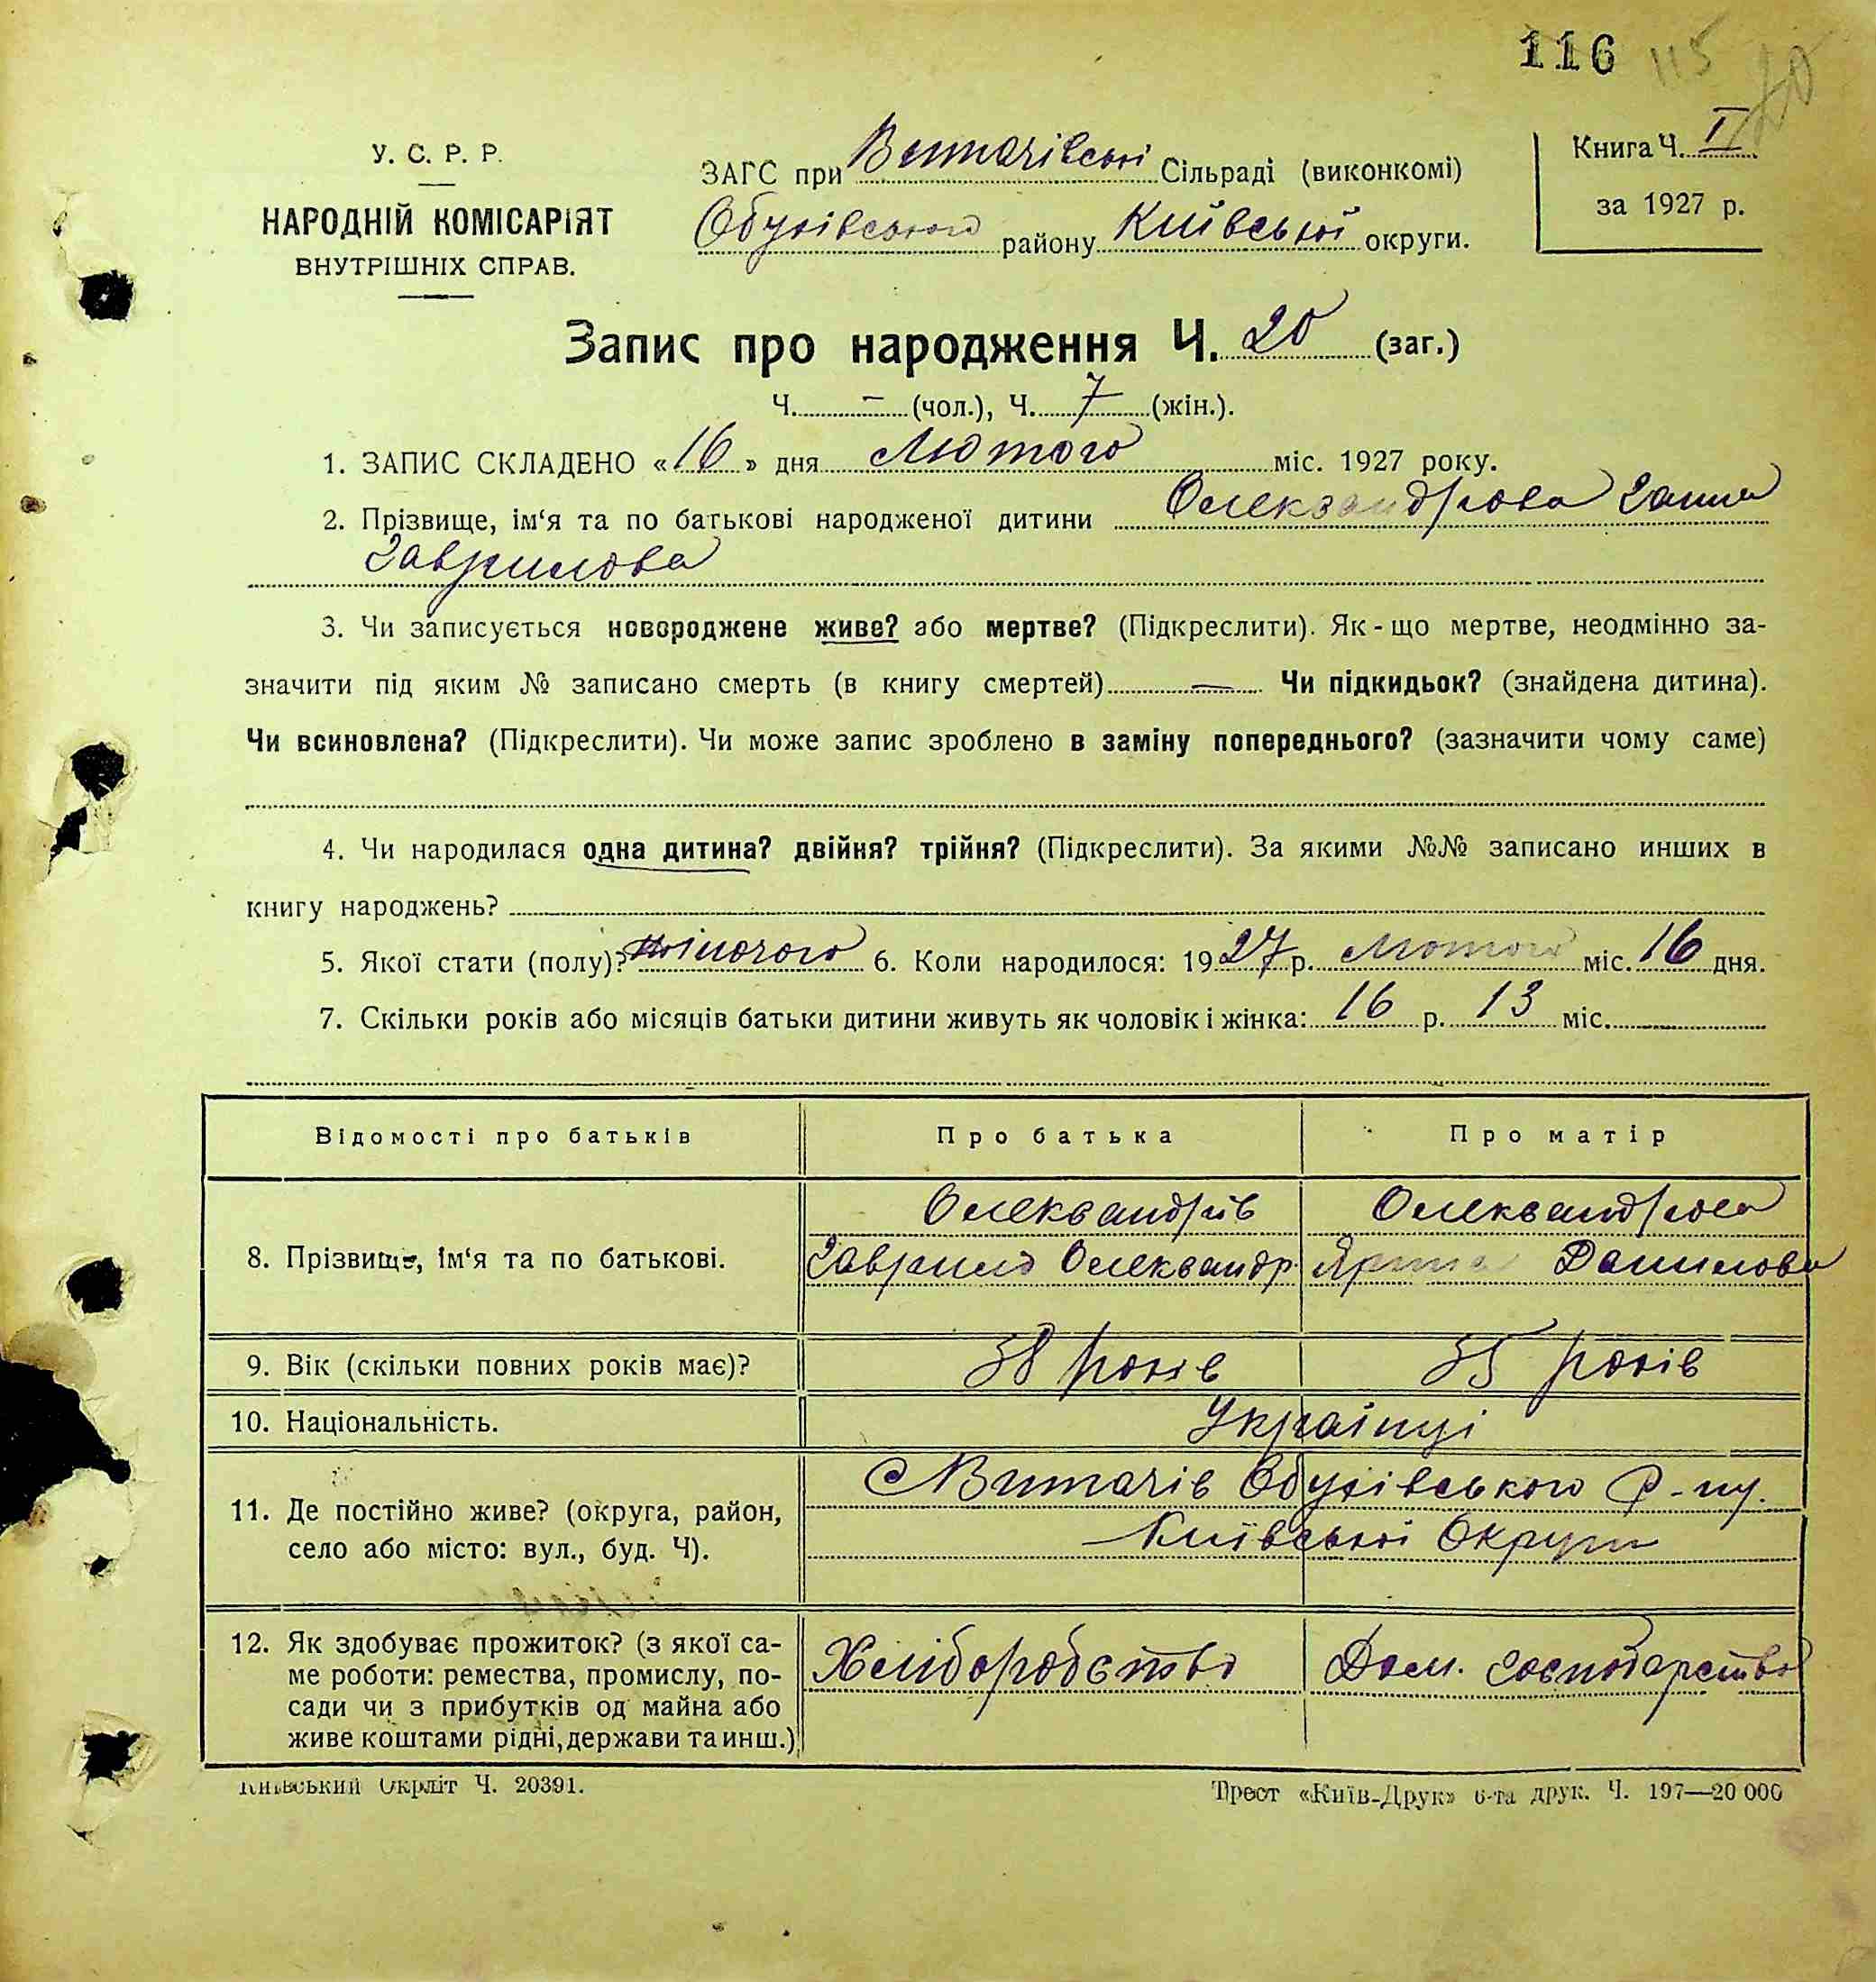 116 115 20
У. С. Р. Р.
НАРОДНІЙ КОМІСАРІЯТ
ВНУТРІШНІХ СПРАВ.
ЗАГС при Витачівські Сільраді (виконкомі)
Обухівського району Київської округи.
Книга Ч. I
за 1927 р.
Запис про народження Ч. 20 (заг.)
Ч. – (чол.), Ч. 7 (жін.).
1. ЗАПИС СКЛАДЕНО «16» дня Лютого міс. 1927 року.
2. Прізвище, ім‘я та по батькові народженої дитини Олександрова Ганна
Гаврилова
3. Чи записується новороджене живе? або мертве? (Підкреслити). Як-що мертве, неодмінно за-
значити під яким № записано смерть (в книгу смертей) — Чи підкидьок? (знайдена дитина).
Чи всиновлена? (Підкреслити). Чи може запис зроблено в заміну попереднього? (зазначити чому саме)
4. Чи народилася одна дитина? двійня? трійня? (Підкреслити). За якими №№ записано инших в
книгу народжень?
5. Якої стати (полу)? жіночого 6. Коли народилося: 1927 р. Лютого міс. 16 дня.
7. Скільки років або місяців батьки дитини живуть як чоловік і жінка: 16 р. 13 міс.
Відомості про батьків Про батька Про матір
8. Прізвище, ім‘я та по батькові.
Олександрів
Гаврило Олександр.
Олександрова
Ярина Данилова
9. Вік (скільки повних років має)? 38 років 35 років
10. Національність. Українці
11. Де постійно живе? (округа, район,
село або місто: вул., буд. Ч).
с Витачів Обухівського Р-ну.
Київської Округи
12. Як здобуває прожиток? (з якої са-
ме роботи: ремества, промислу, по-
сади чи з прибутків од майна або
живе коштами рідні, держави та инш.)
Хліборобство
Дом. господарство
Київський Окрліт Ч. 20391.
Трест «Київ-Друк» 6-та друк. Ч. 197—20 000